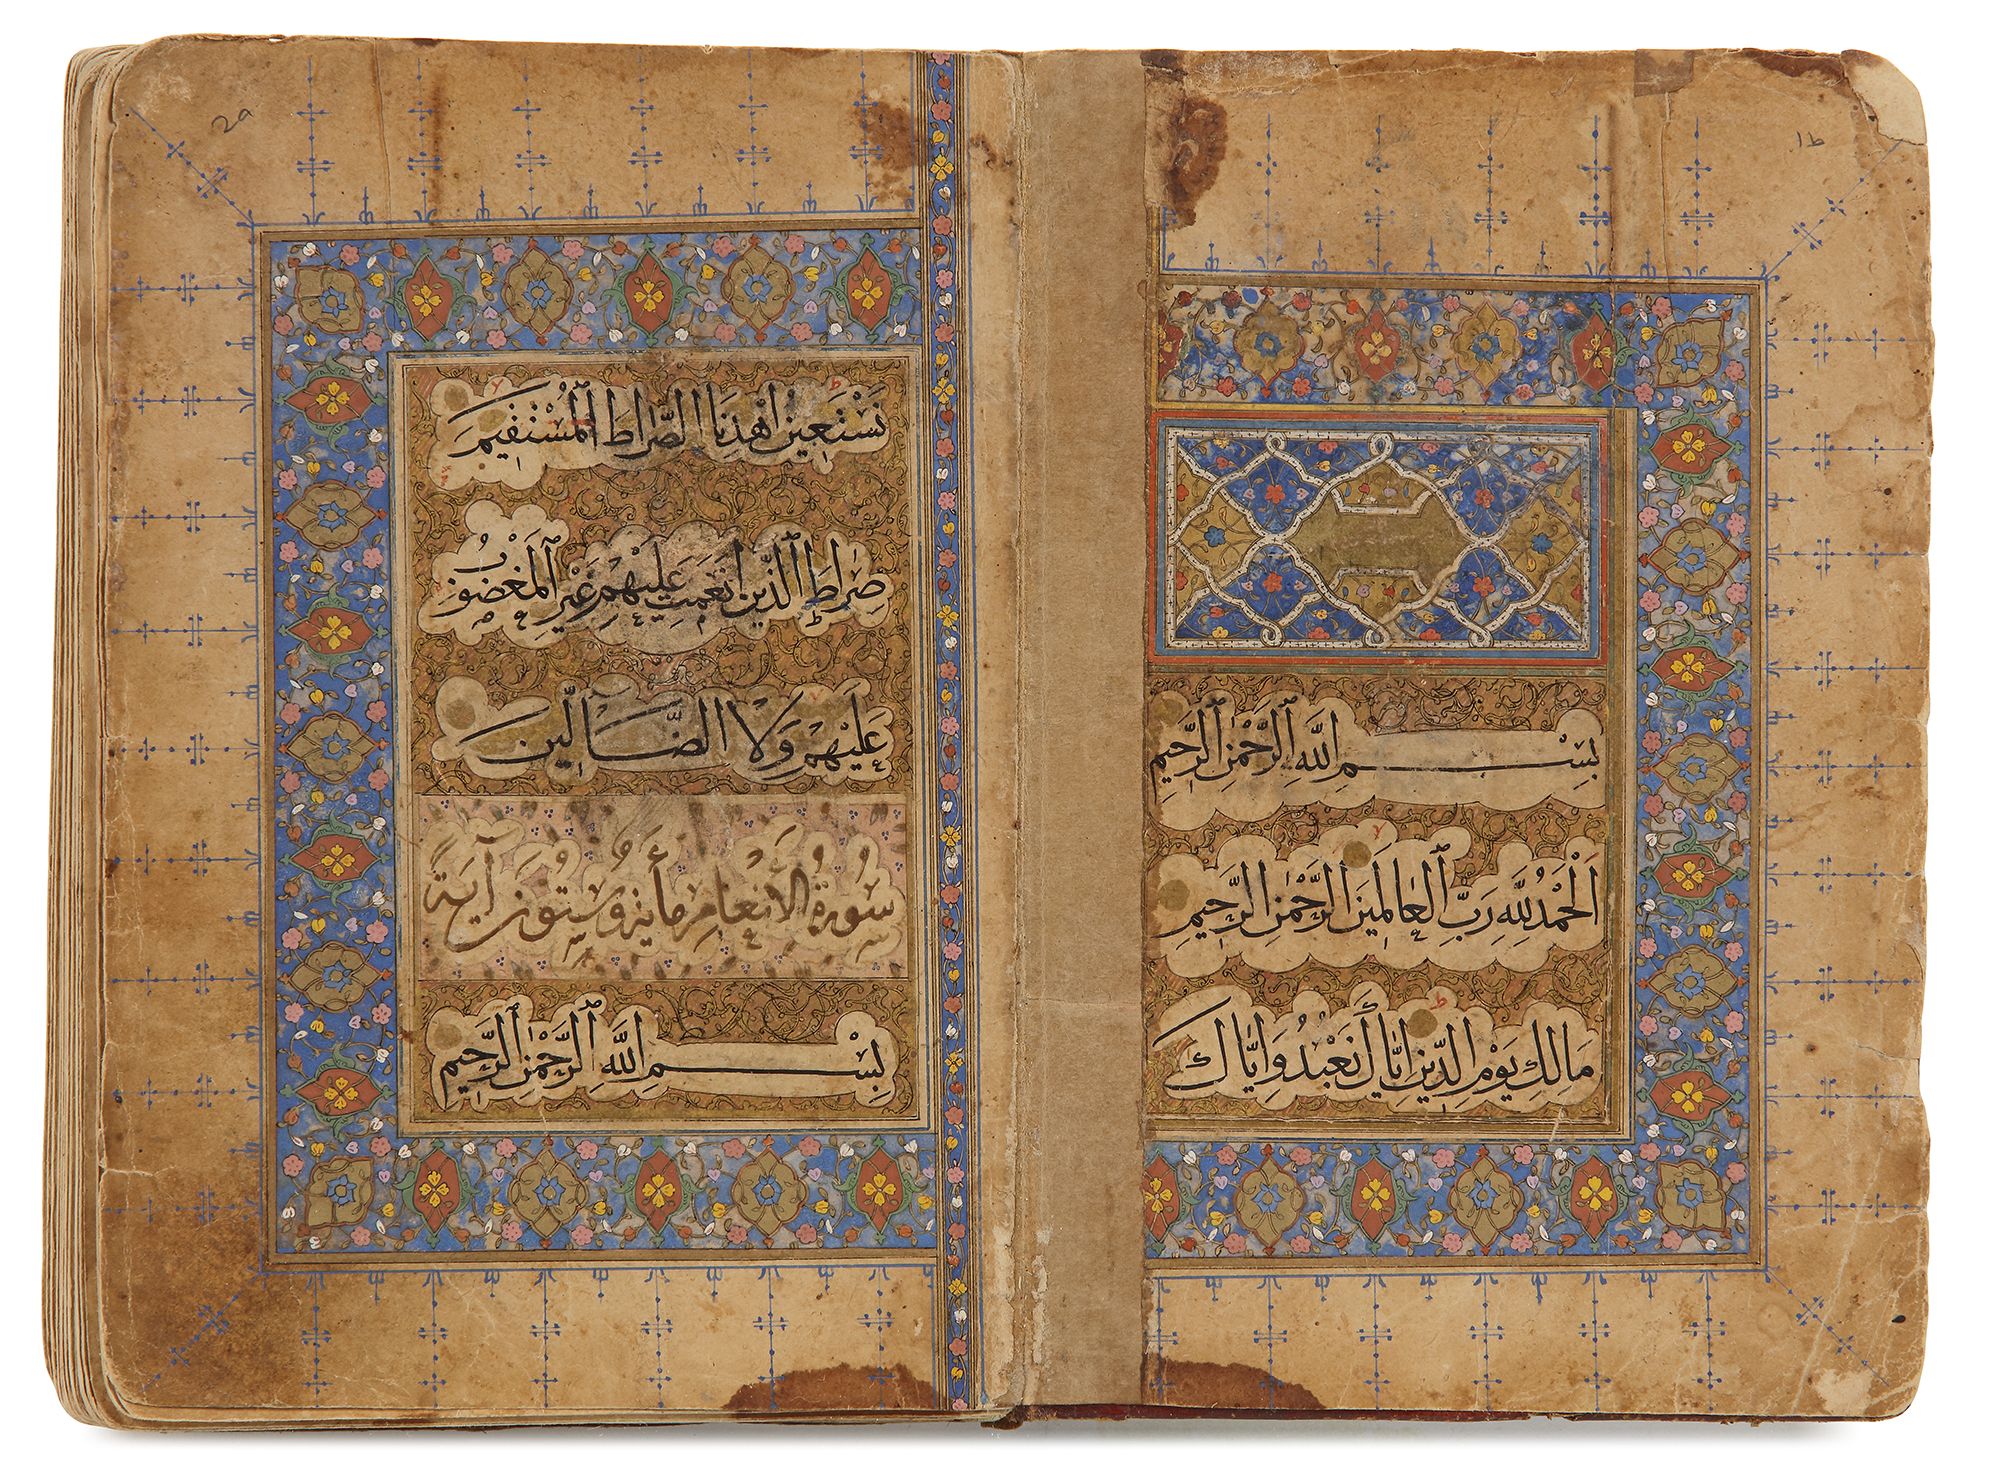 1b
بِسْمِ اللَّهِ الرَّحْمٰنِ الرَّحِيمِ
اَلْحَمْدُ لِلَّهِ رَبِّ الْعَالَمِينَ الرَّحْمٰنِ الرَّحِيمِ
مَالِكِ يَوْمِ الدِّينِ اِيَّاكَ نَعْبُدُ وَاِيَّاكَ
2a
نَسْتَعِينُ اهْدِنَا الصِّرَاطَ الْمُسْتَقِيمَ
صِرَاطَ الَّذِينَ اَنْعَمْتَ عَلَيْهِمْ غَيْرِ الْمَغْضُوبِ
عَلَيْهِمْ وَلَا الضَّالِّينَ
سُورَةُ الأَنْعَامِ مأية وَسِتُّونَ آيَةً
بِسْمِ اللَّهِ الرَّحْمٰنِ الرَّحِيمِ